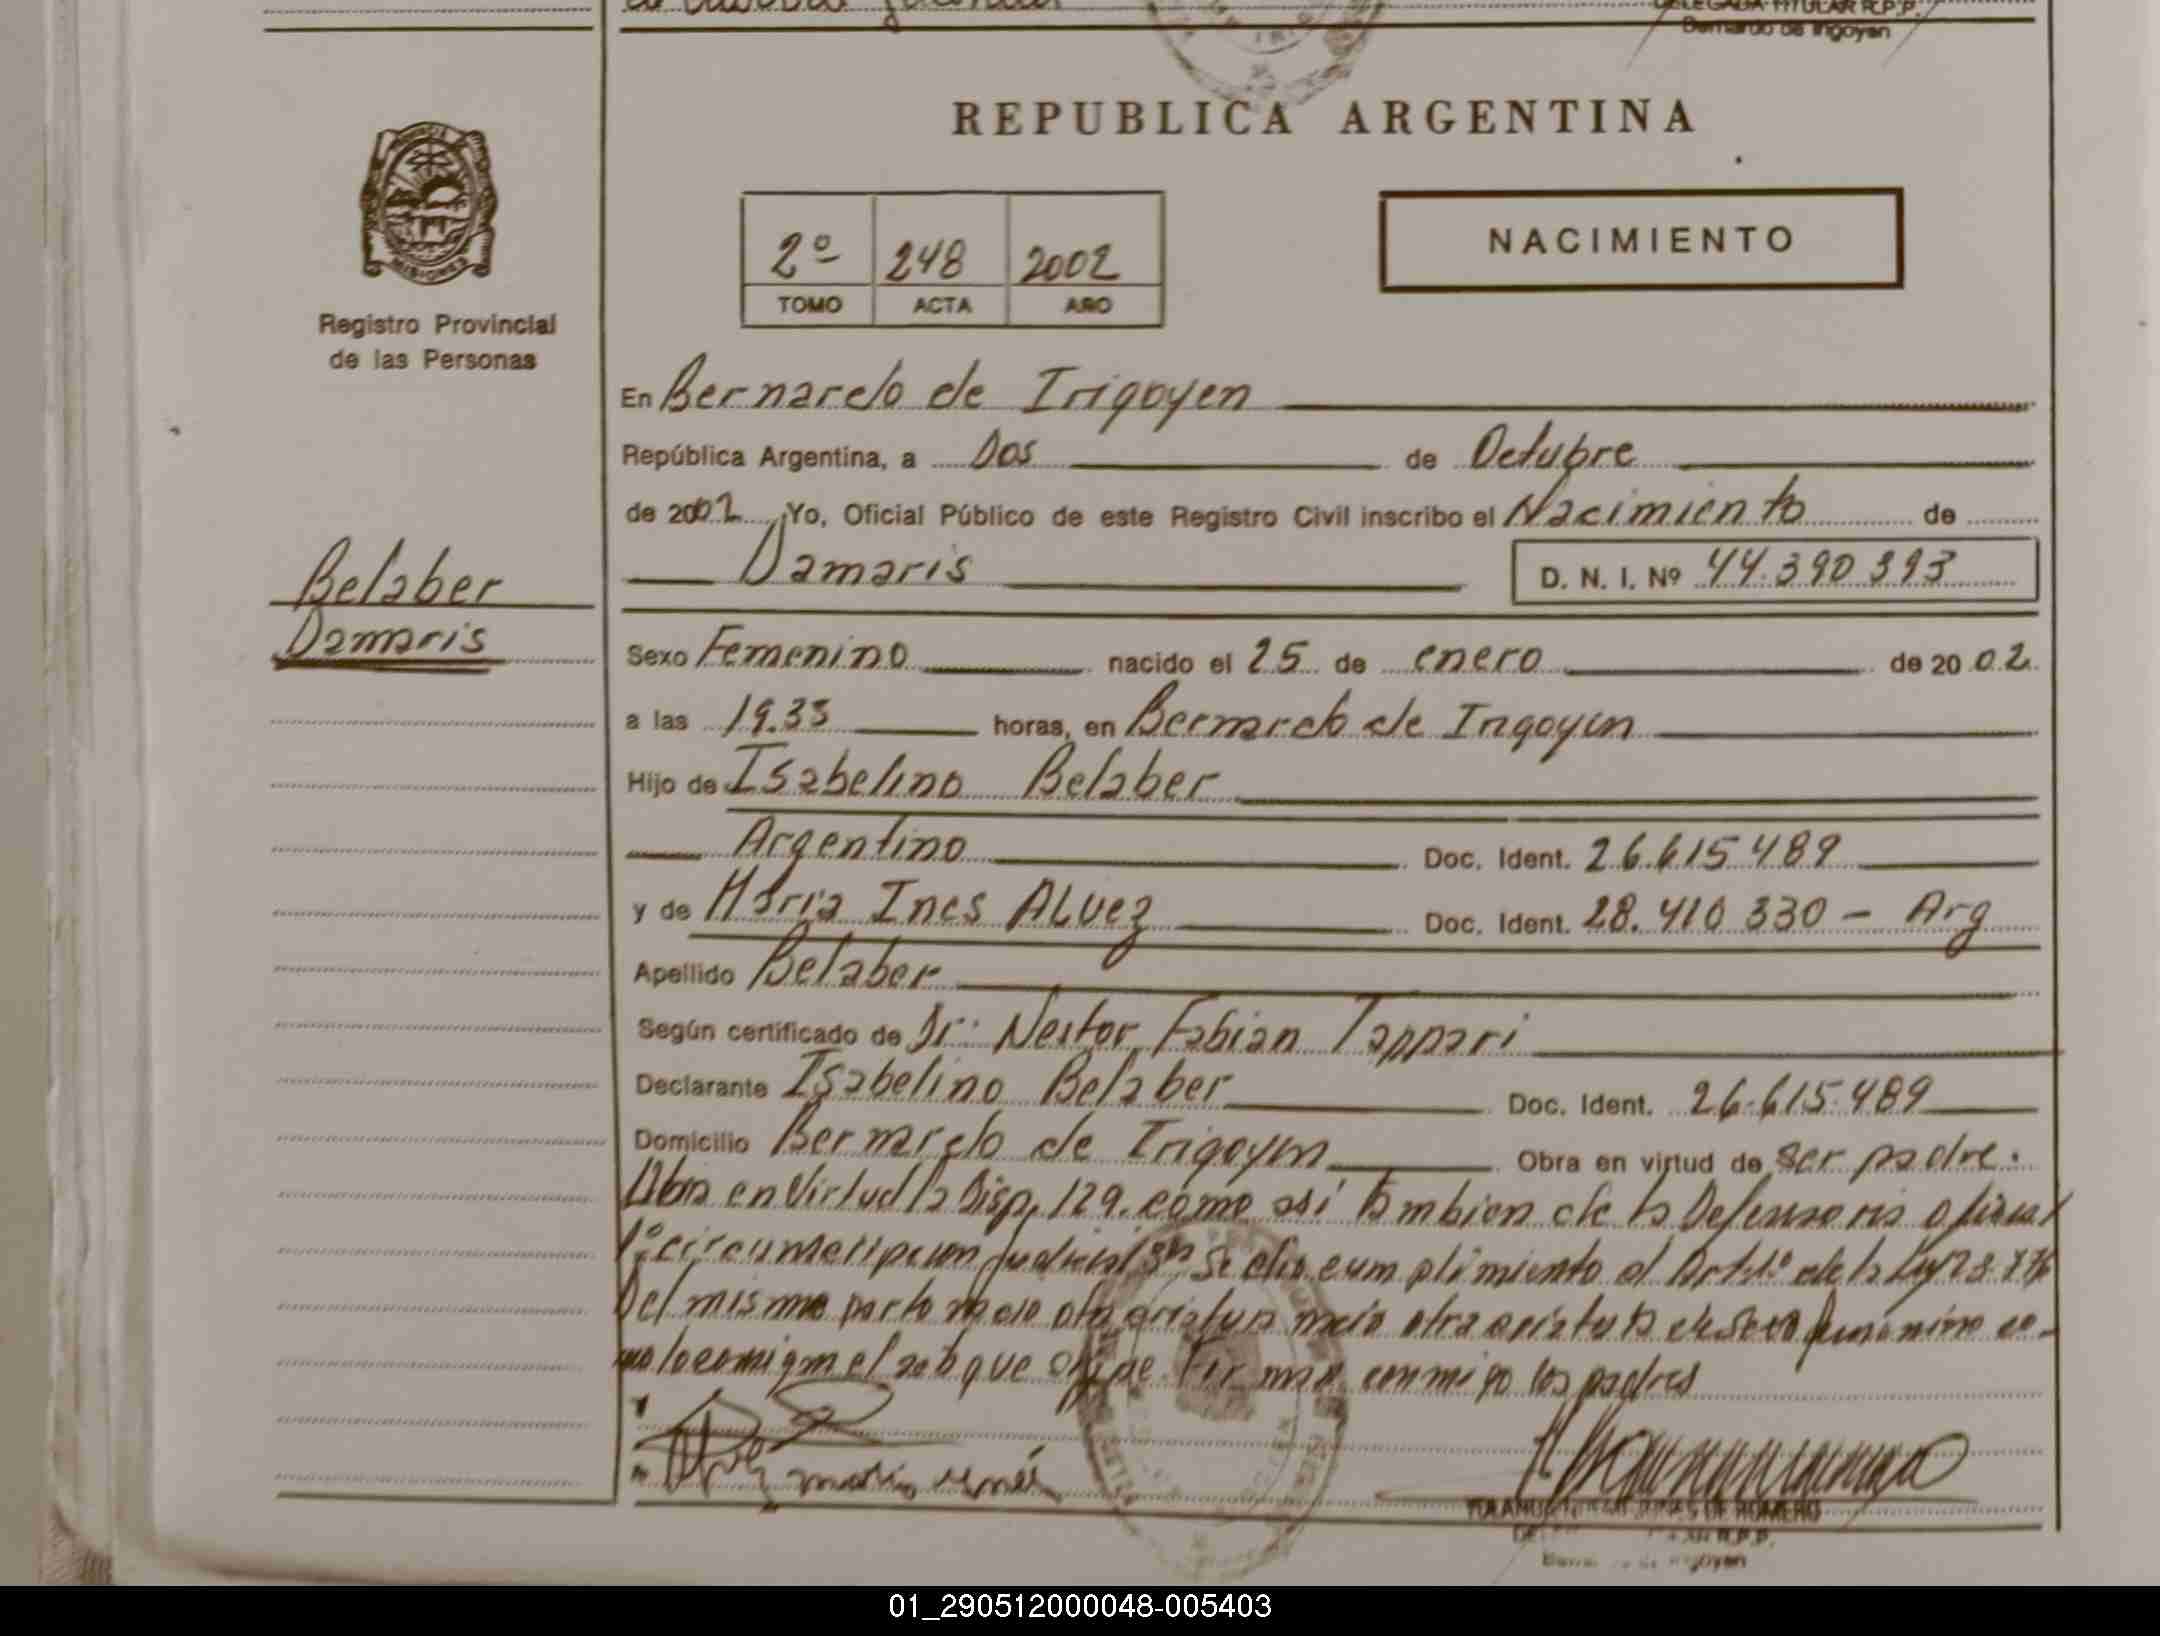 Bernardo de Irigoyen
REPUBLICA ARGENTINA
MISIONES
2º 248 2002
TOMO ACTA AÑO
NACIMIENTO
Registro Provincial
de las Personas
En Bernardo de Irigoyen
República Argentina, a Dos de Octubre
de 2002 Yo, Oficial Público de este Registro Civil inscribo el Nacimiento de
Damaris D. N. I. Nº 44.390 393
Belaber
Damaris
Sexo Femenino nacido el 25 de enero de 20 02
a las 19.33 horas, en Bernardo de Irigoyen
Hijo de Isabelino Belaber
Argentino Doc. Ident. 26.615 489
y de Maria Ines ALvez Doc. Ident. 28.410 330 - Arg
Apellido Belaber
Según certificado de Dr: Nestor Fabian Tappari
Declarante Isabelino Belaber Doc. Ident. 26.615.489
Domicilio Bernardo de Irigoyen Obra en virtud de ser padre.
en Virtud la Disp. 129. como asi tambien de la Defensoria oficial
1º circunscripcion judicial se dio cumplimiento al de la Ley
Del mismo parto nacio otra criatura nacio otra criatura de sexo femenino
el que Firman conmigo los padres
maria ines
DE ROMERO
R.P.P.
01_290512000048-005403